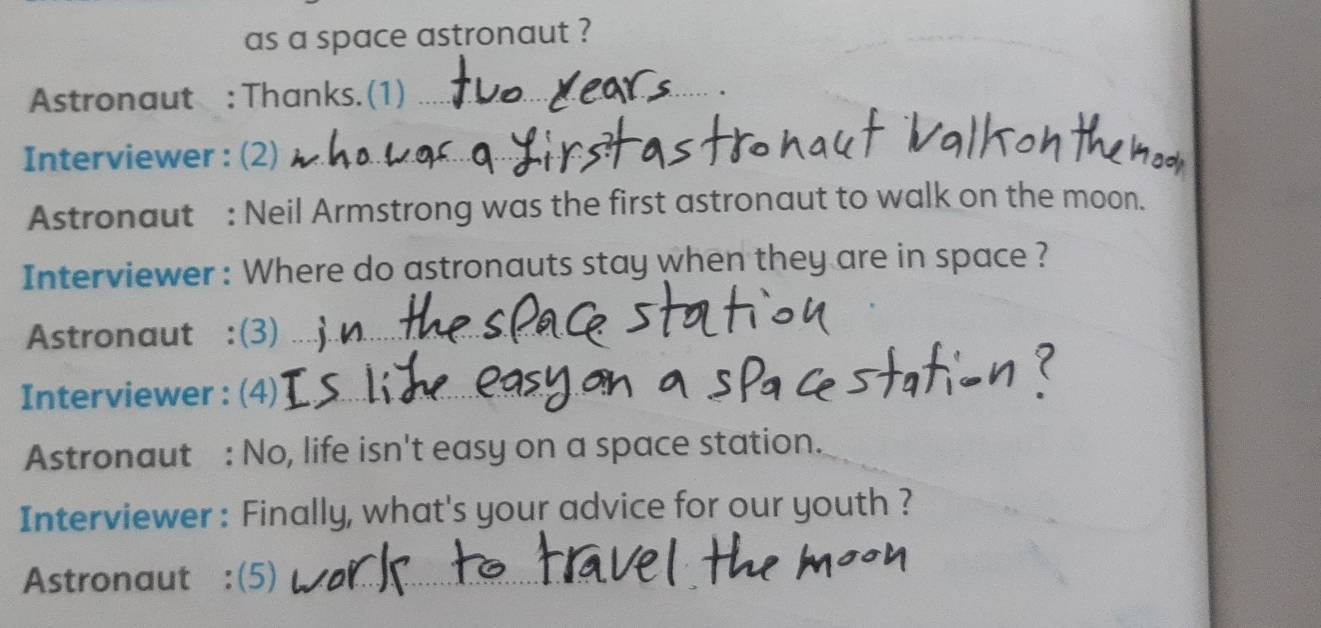 as a space astronaut ?
Astronaut : Thanks. (1) two years .
Interviewer : (2) who was a first astronaut walk on the moon
Astronaut : Neil Armstrong was the first astronaut to walk on the moon.
Interviewer : Where do astronauts stay when they are in space ?
Astronaut : (3) in the space station
Interviewer : (4) Is life easy on a space station ?
Astronaut : No, life isn't easy on a space station.
Interviewer : Finally, what's your advice for our youth ?
Astronaut : (5) work to travel the moon